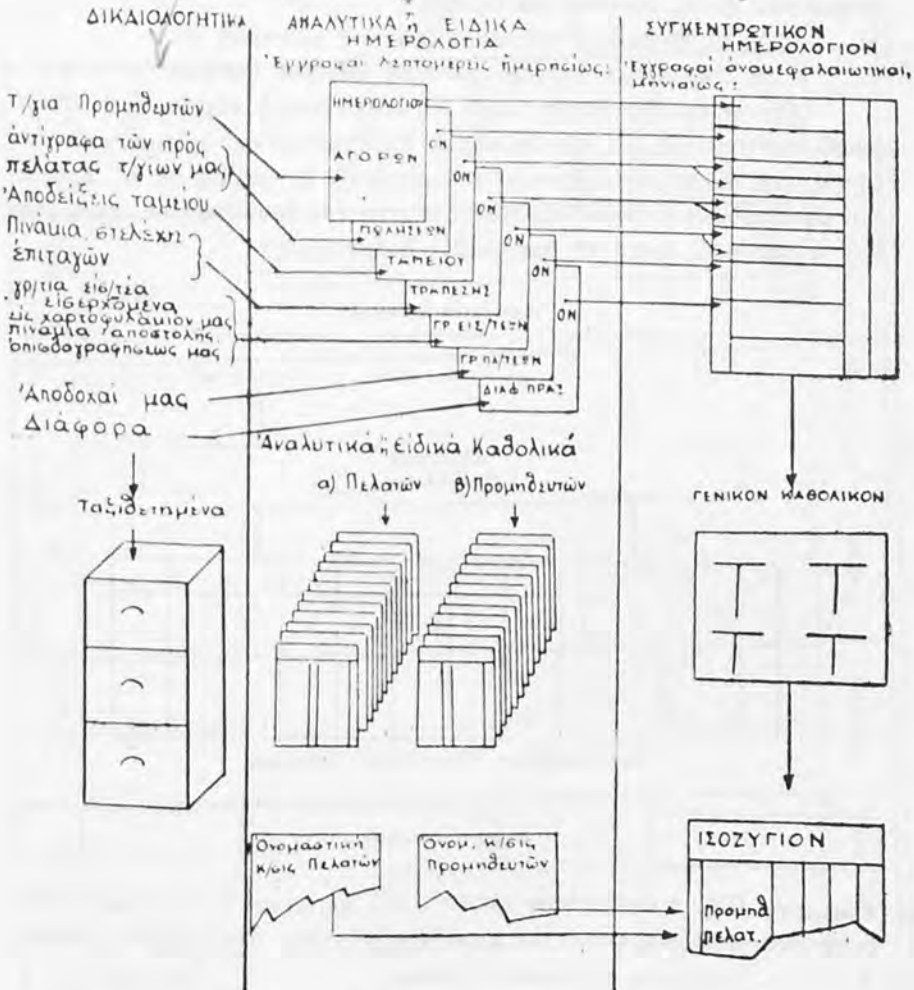 ΔΙΚΑΙΟΛΟΓΗΤΙΚΑ
Τ/για Προμηθευτών
ἀντίγραφα τῶν πρός
πελάτας τ/γιων μας
Ἀποδείξεις ταμείου
Πινάκια, στελέχη
ἐπιταγών
γρ/τια εἰσ/τέα
εἰσερχόμενα
εἰς χαρτοφυλάκιόν μας
πινάκια ἀποστολής
ὀπισθογραφήσεως μας
Ἀποδοχαί μας
Διάφορα
Ταξιθετημένα
ΑΝΑΛΥΤΙΚΑ ἤ ΕΙΔΙΚΑ
ΗΜΕΡΟΛΟΓΙΑ
Ἐγγραφαί λεπτομερεῖς ἡμερησίως:
ΗΜΕΡΟΛΟΓΙΟΝ
ΑΓΟΡΩΝ
ΟΝ
ΠΩΛΗΣΕΩΝ
ΟΝ
ΤΑΜΕΙΟΥ
ΟΝ
ΤΡΑΠΕΖΗΣ
ΟΝ
ΓΡ ΕΙΣ/ΤΕΩΝ
ΟΝ
ΓΡ ΠΛ/ΤΕΩΝ
ΟΝ
ΔΙΑΦ ΠΡΑΞ
Ἀναλυτικά ἤ Εἰδικά Καθολικά
α) Πελατών
β) Προμηθευτών
Ὀνομαστική
κ/σις Πελατών
Ὀνομ. κ/σις
Προμηθευτών
ΣΥΓΚΕΝΤΡΩΤΙΚΟΝ
ΗΜΕΡΟΛΟΓΙΟΝ
Ἐγγραφαί ἀνακεφαλαιωτικαί,
μηνιαίως:
ΓΕΝΙΚΟΝ ΚΑΘΟΛΙΚΟΝ
ΙΣΟΖΥΓΙΟΝ
Προμηθ
Πελατ.